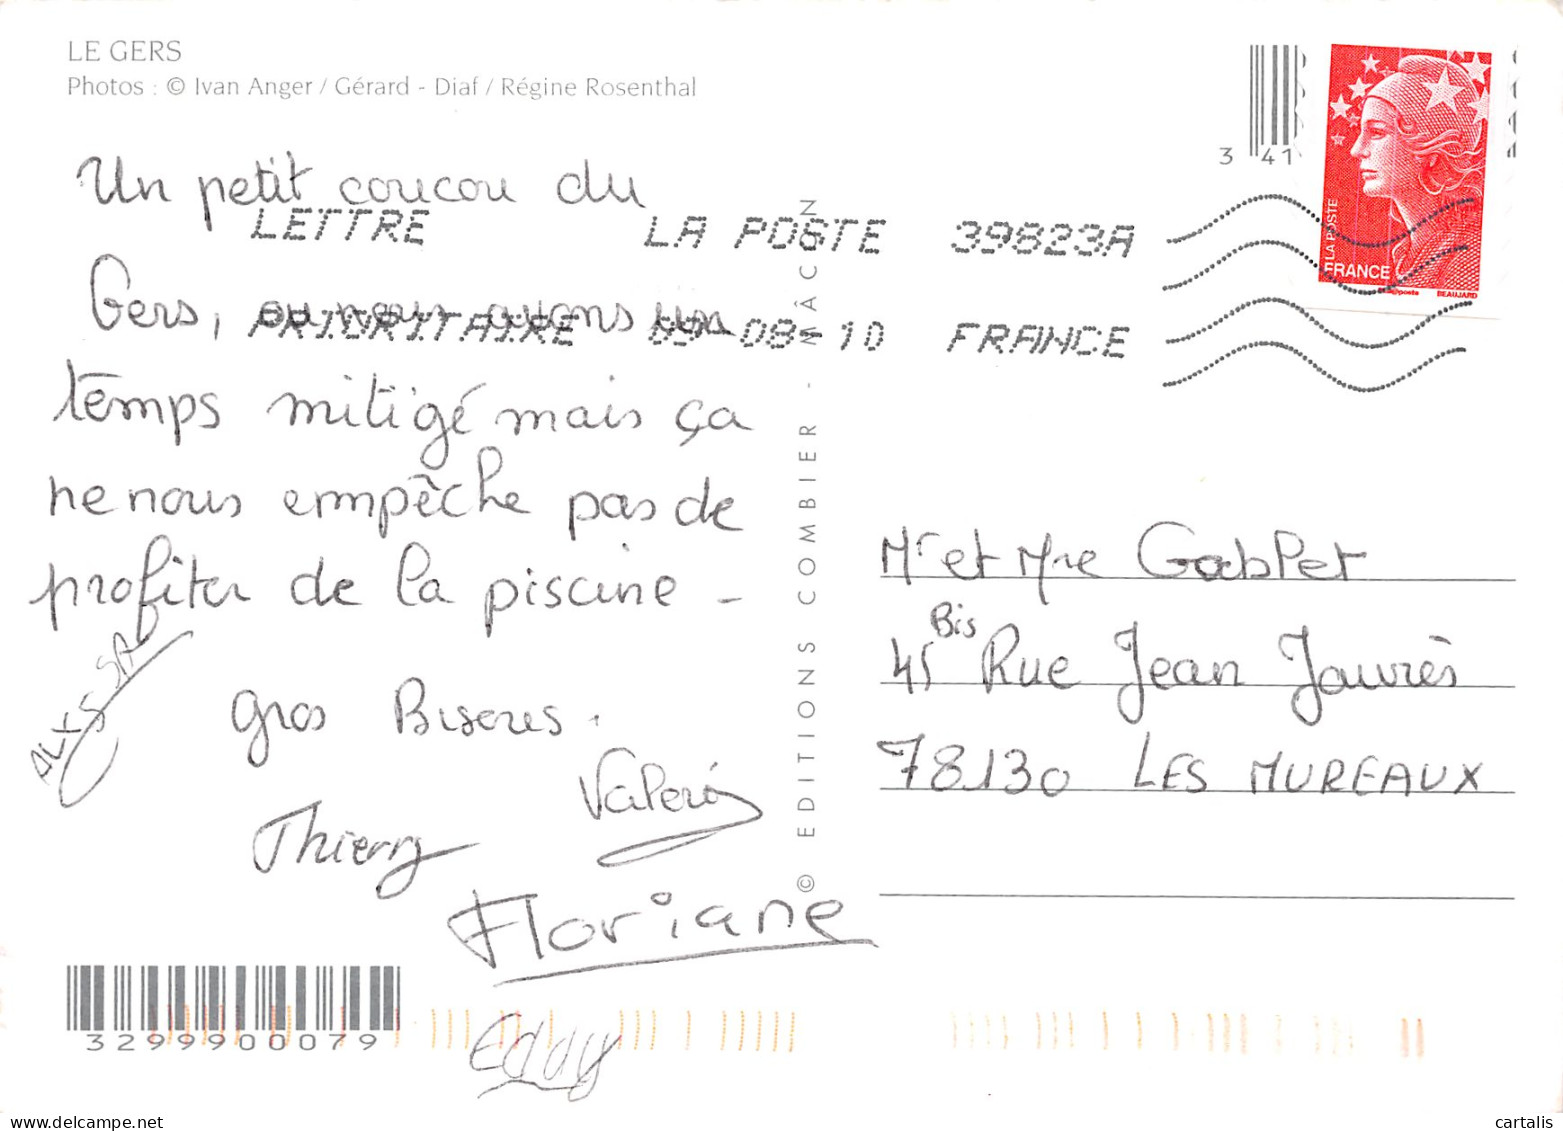 LE GERS
Photos : © Ivan Anger / Gérard - Diaf / Régine Rosenthal
3 41
LA POSTE
FRANCE
BEAUJARD
Un petit coucou du
LETTRE LA POSTE 39823A
Gers, ou nous avons un
PRIORITAIRE 09-08-10 FRANCE
temps mitigé mais ça
ne nous empêche pas de
profiter de la piscine -
gros Bisous.
Valérie
Thierry
Floriane
Eddy
© EDITIONS COMBIER - MÂCON
Mr et Mme
45 Bis Rue Jean Jaurès
78130 LES MUREAUX
3299900079
cartalis